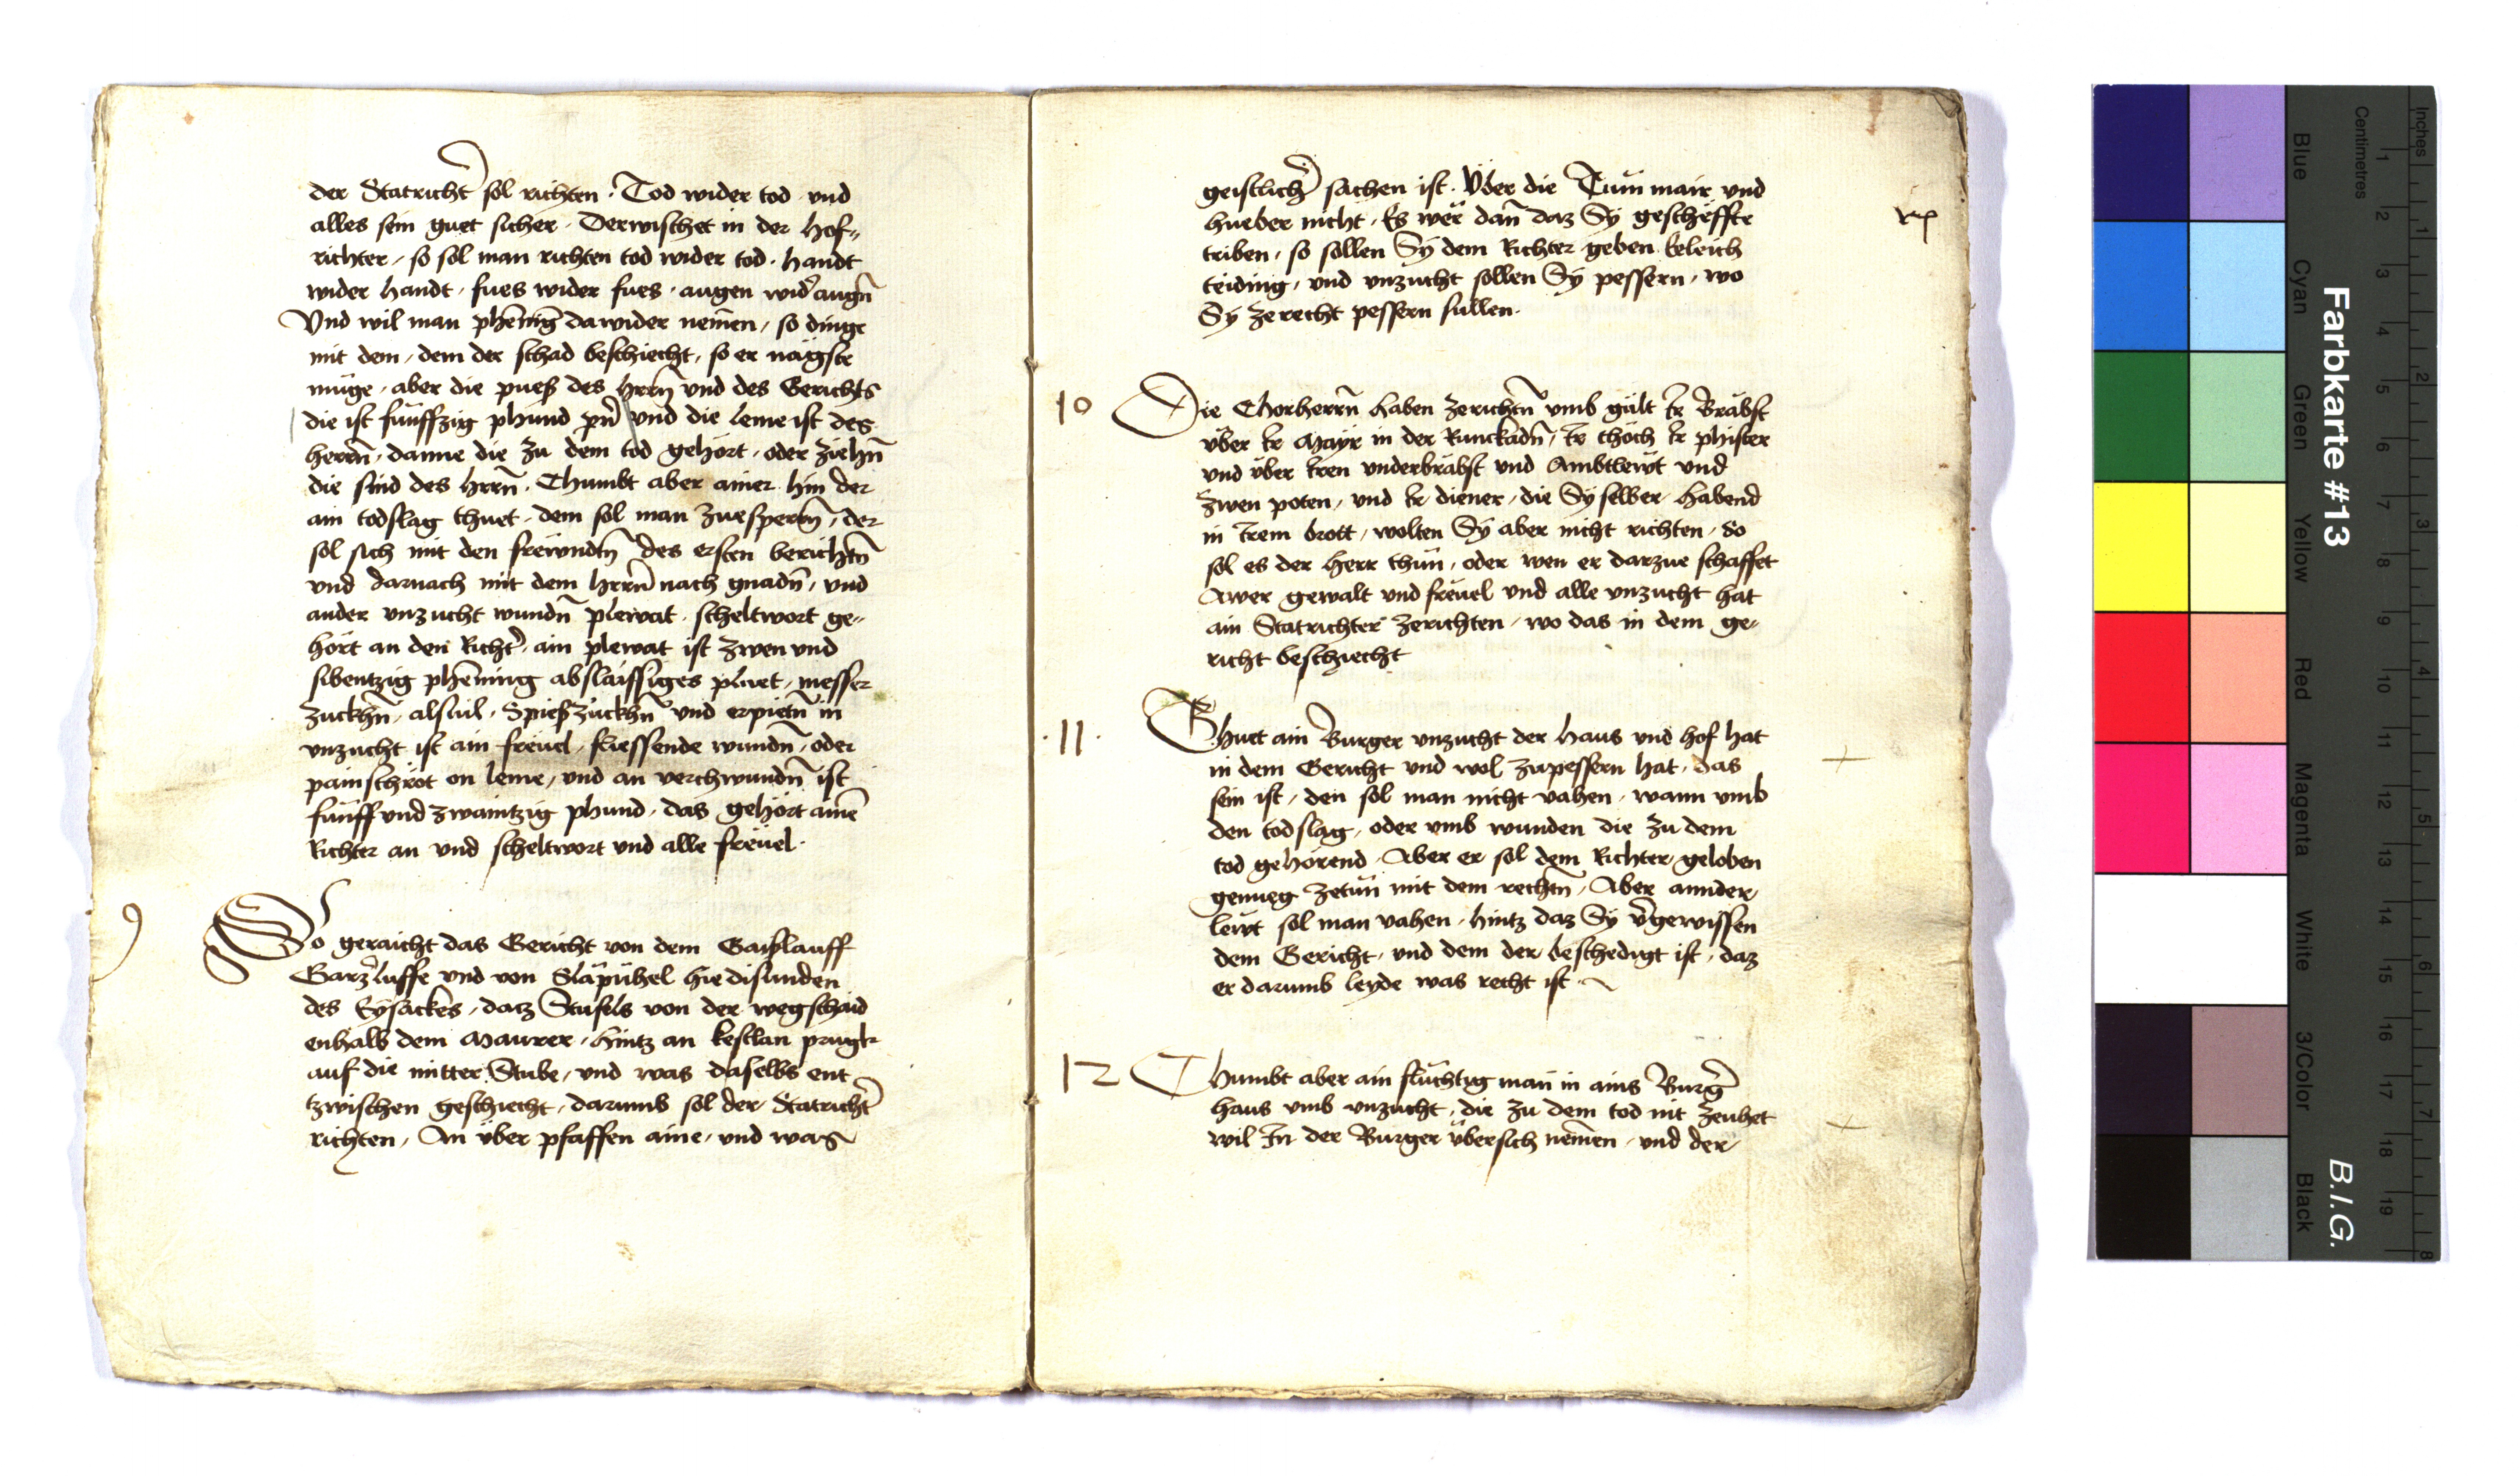 der Statricht̄ sol richten. Tod wider tod und
alles sein guet sicher. Derwischet in der hof„
richter, so sol man richten tod wider tod. handt
wider handt, fues wider fues, augen wid̄ augn̄
Und wil man phēnig dawider nemen, so dinge
mit dem, dem der schad beschiecht, so er nägste
müge, aber die pueß des hrrn̄ und des Gerichts
die ist fünffzig phund und die leme ist des
herrn̄, danne die zu dem tod gehort, oder ziehn̄
die sind des hrrn̄. Chumbt aber ainer hin der
ain todslag thuet, dem sol man zuesperrn̄, der
sol sich mit den freündtn̄ des ersten berichtn̄
und darnach mit dem hrrn̄ nach gnadn̄, und
ander unzucht wundn̄ plewat, scheltwort ge„
hört an den Richt̄, ain plewat ist zwen und
sibentzig phēning abslaissiges pluet, messer
zuckhn̄, alsvil, Spießzückhn̄ und erpietn̄ in
unzucht ist ain freuel, fliessende wundn̄, oder
painschröt on leme, und an verchwundn̄ ist
fünff und zwaintzig phund, das gehört ainē
Richter an und scheltwort und alle freuel.
9 So geraicht das Gericht von dem Gaislauff
Garz̄luffe und von Slapühel hie disunden
des Eysackes, datz Stufls von der wegschaid
enhalb dem Maurer, hintz an kestlan prugk
auf die mitter Stube, und was daselbs ent
tzwischen geschiecht, darumb sol der Statricht̄
richten, An über pfaffen aine, und was
geistlich̄ sachen ist. Über die Tum mair und
hueber nicht, Es wer dañ daz Sy gescheffte
triben, so sollen Sy dem Richter geben keleich
teiding, und unzucht sollen Sy pessern, wo
Sy ze recht pessern sullen.
10 Die Chorherrn̄ haben zerichtn̄ umb gült Ir Bräbst
über Ir Mayr in der Runckadn̄, Ir chöch Ir phister
und über Iren underbräbst und Ambtlewt und
zwen poten, und Ir diener, die Sy selber habend
in Irem brott, wolten Sy aber nicht richten, So
sol es der herr thün, oder wen er darzue schaffet
Awer gewalt und freuel und alle unzucht hat
ain Statrichter zerichten, wo das in dem ge„
richt beschiecht
.11. Thuet ain Burger unzucht der haus und hof hat
in dem Gericht und wol zupessern hat, das
sein ist, den sol man nicht vahen, wann umb
den todslag, oder umb wunden die zu dem
tod gehörend, Aber er sol dem Richter geloben
genueg zetün mit dem rechtn̄, Aber annder
lewt sol man vahen, hintz daz Sy v̄gewissen
dem Gericht, und dem der beschedigt ist, daz
er darumb leyde was recht ist.
12 Chumbt aber ain flüchtig man in ains Burḡ
haus umb unzucht, die zu dem tod nit zeuhet
wil In der Burger übersich nemen, und der
Farbkarte #13
B.I.G.
Blue Cyan Green Yellow Red Magenta White 3/Color Black
Centimetres 1 2 3 4 5 6 7 8 9 10 11 12 13 14 15 16 17 18 19
Inches 1 2 3 4 5 6 7 8